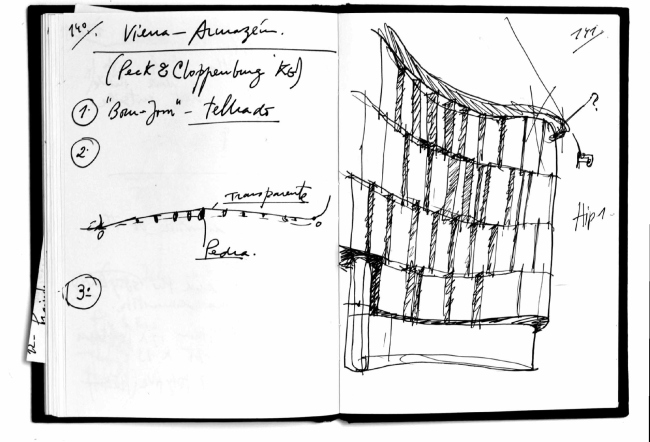 140.
Viena - Armazém.
(Peck & Cloppenburg KG)
1. "Bom-Tom" - telhado
2.
Transparente
Pedra.
3.
141.
?
Hip 1-